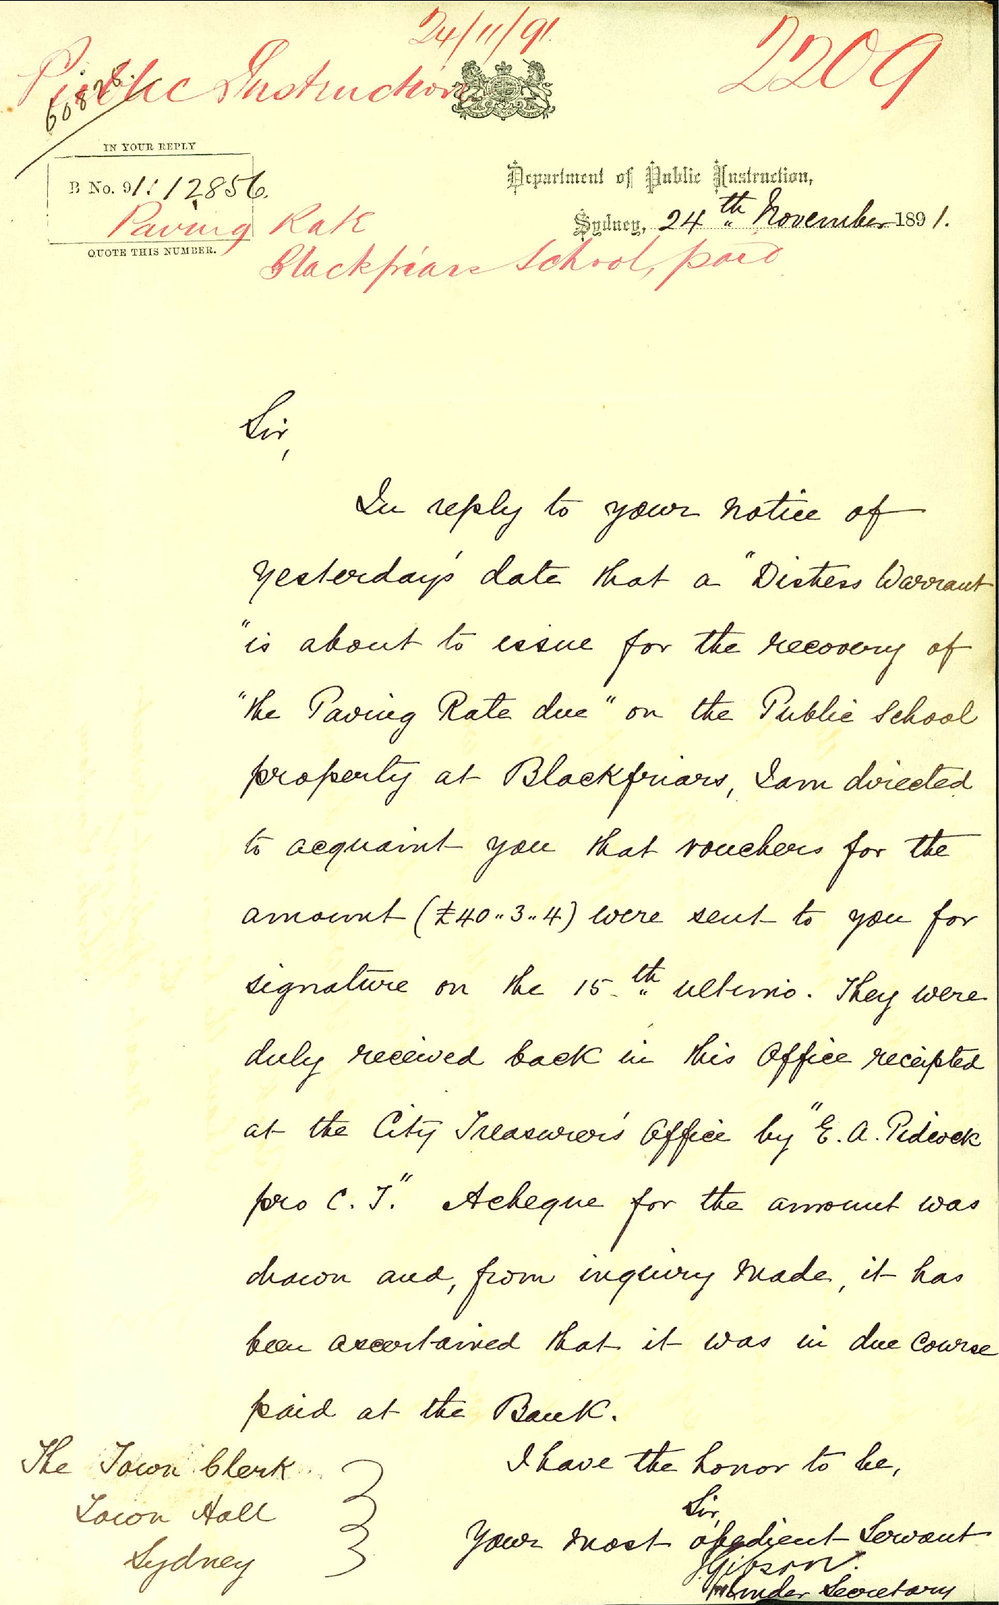 24/11/91.
2209
Public Instruction
60828
IN YOUR REPLY
B No. 91:12856.
QUOTE THIS NUMBER.
Department of Public Instruction,
Sydney, 24th November 1891.
Paving Rate
Blackfriars School, paid
Sir,
In reply to your notice of
yesterday's date that a "Distress Warrant
"is about to issue for the recovery of
"the Paving Rate due" on the Public School
property at Blackfriars, I am directed
to acquaint you that vouchers for the
amount (£40..3..4) were sent to you for
signature on the 15th ultimo. They were
duly received back in this Office receipted
at the City Treasurer's Office by "E. A. Pidcock
pro C. T." A cheque for the amount was
drawn and, from inquiry made, it has
been ascertained that it was in due course
paid at the Bank.
I have the honor to be,
Sir,
Your most obedient Servant
JGibson.
Under Secretary
The Town Clerk
Town Hall
Sydney